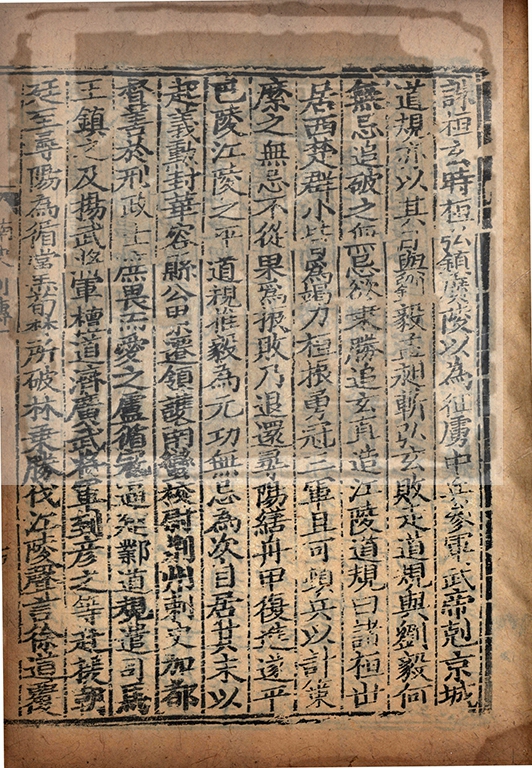 誅桓玄時桓弘鎮廣陵以為征虜中兵參軍武帝剋京城
道規亦以其日與劉毅孟昶斬弘玄敗走道規與劉毅何
無忌追破之無忌欲乗勝追玄直造江陵道規曰諸桓世
居西楚群小皆為竭力桓振勇冠三軍且可頓兵以計策
縻之無忌不從果為振敗乃退還尋陽繕舟甲復進遂平
巴陵江陵之平道規推毅為元功無忌為次自居其末以
起義勳封華容縣公累遷領護南蠻校尉荊州刺史加都
督善於刑政士庶畏而愛之盧循寇逼建鄴道規遣司馬
王鎮之及揚武將軍檀道濟廣武將軍到彦之等赴援朝
廷至尋陽為循黨荀林所破林乗勝伐江陵聲言徐道覆